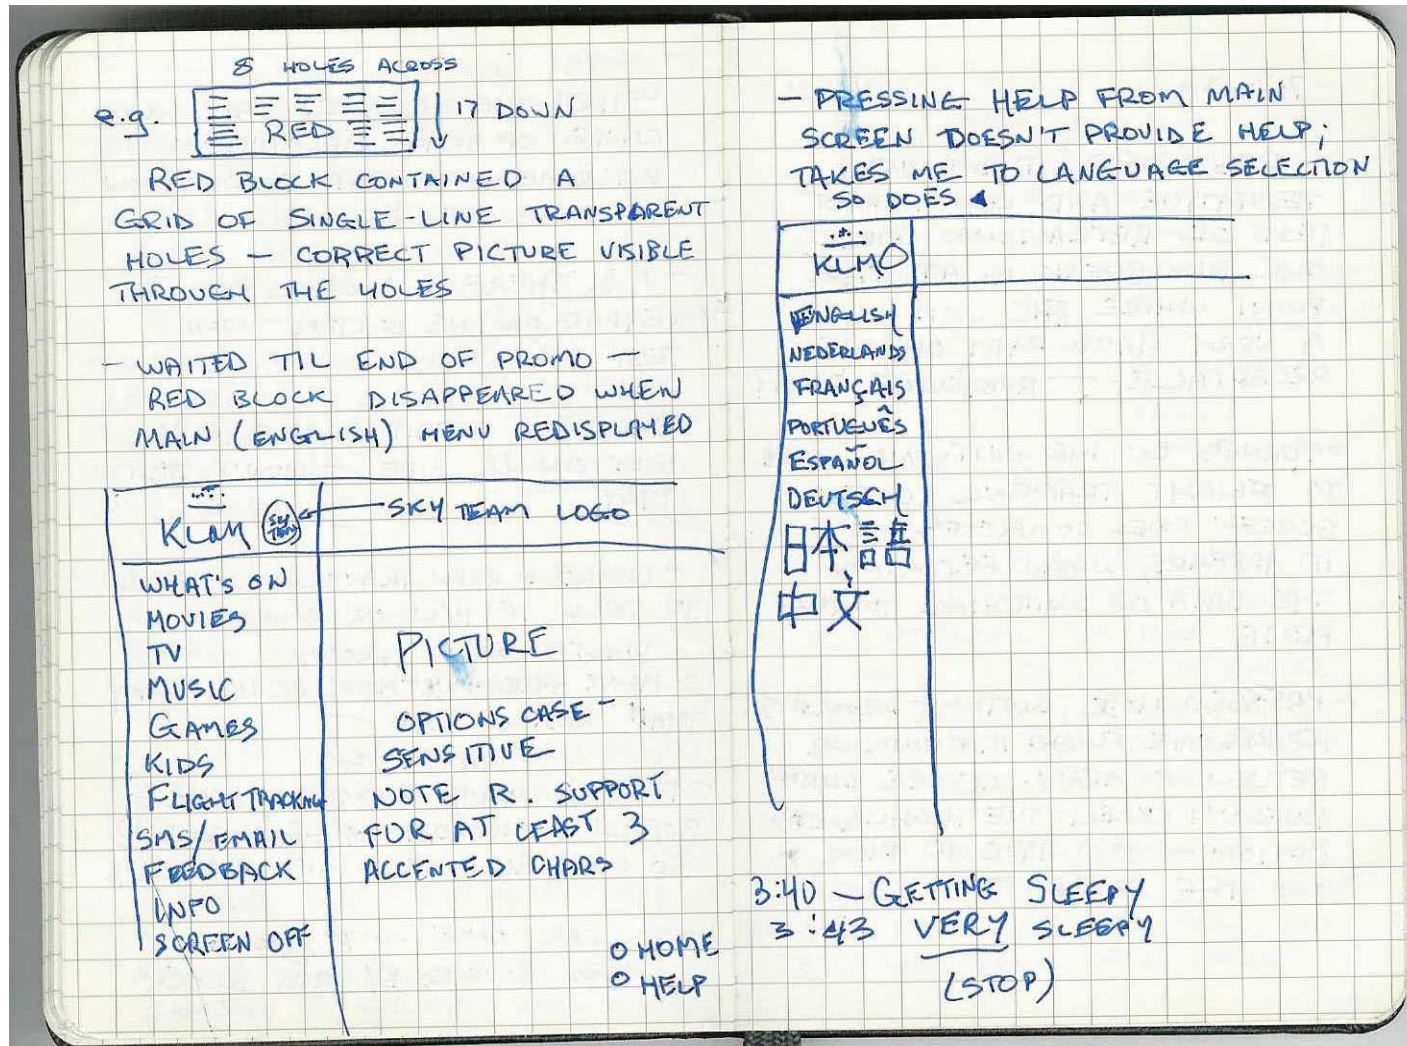 8 HOLES ACROSS
e.g.
RED
17 DOWN
RED BLOCK CONTAINED A
GRID OF SINGLE-LINE TRANSPARENT
HOLES — CORRECT PICTURE VISIBLE
THROUGH THE HOLES
- WAITED TIL END OF PROMO —
RED BLOCK DISAPPEARED WHEN
MAIN (ENGLISH) MENU REDISPLAYED
KLM
SKY TEAM
SKY TEAM LOGO
WHAT'S ON
MOVIES
TV
MUSIC
GAMES
KIDS
FLIGHT TRACKING
SMS/EMAIL
FEEDBACK
INFO
SCREEN OFF
PICTURE
OPTIONS CASE-
SENSITIVE
NOTE R. SUPPORT
FOR AT LEAST 3
ACCENTED CHARS
HOME
HELP
- PRESSING HELP FROM MAIN
SCREEN DOESN'T PROVIDE HELP;
TAKES ME TO LANGUAGE SELECTION
SO DOES ◀
KLM
ENGLISH
NEDERLANDS
FRANÇAIS
PORTUGUÊS
ESPAÑOL
DEUTSCH
日本語
中文
3:40 — GETTING SLEEPY
3:43 VERY SLEEPY
(STOP)